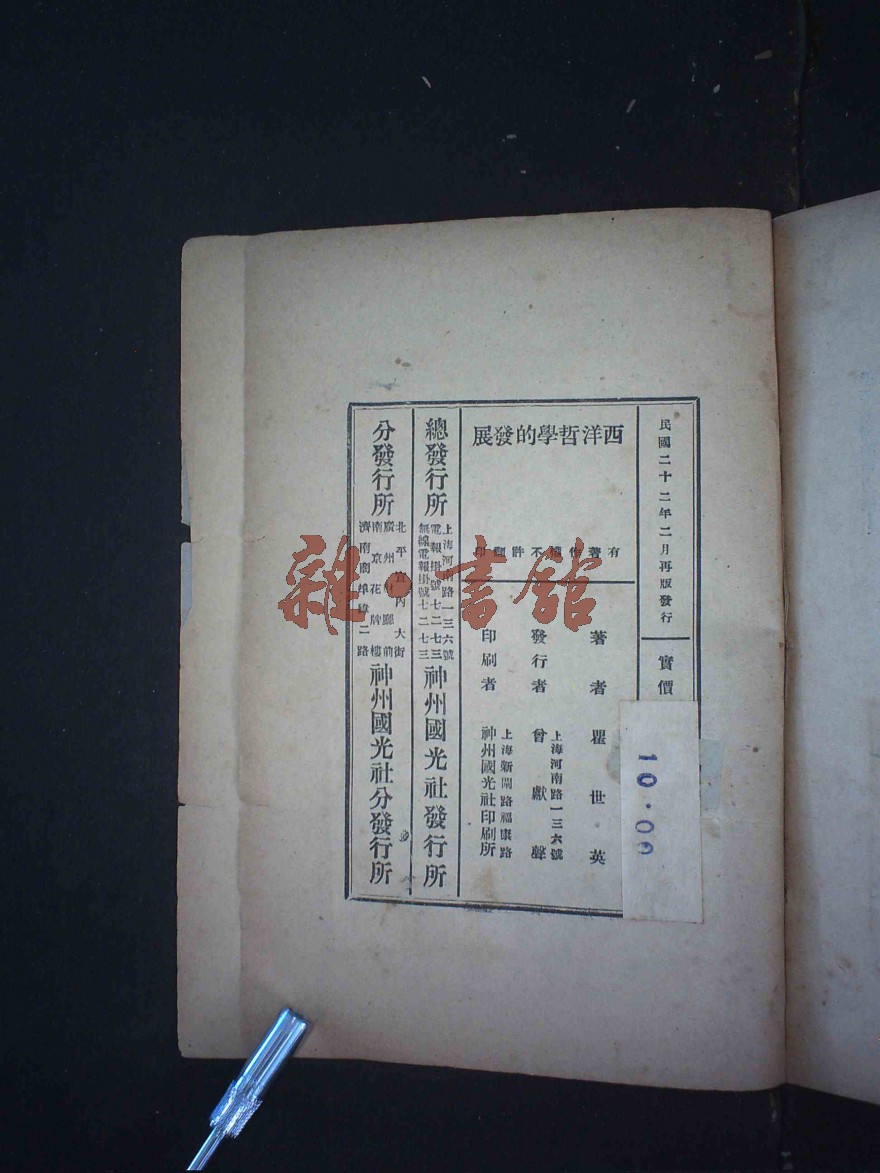 民國二十二年二月再版發行
實價
西洋哲學的發展
有著作權不許翻印
著者 瞿世英
發行者 上海河南路一三六號 曾獻聲
印刷者 上海新閘路福康路 神州國光社印刷所
總發行所
上海河南路一三六號
電報掛號七二七三
無線電報掛號七二七三
神州國光社發行所
分發行所
北平宣內大街
廣州財廳前
南京花牌樓
濟南商埠緯二路
神州國光社分發行所
10.00
雜·書館